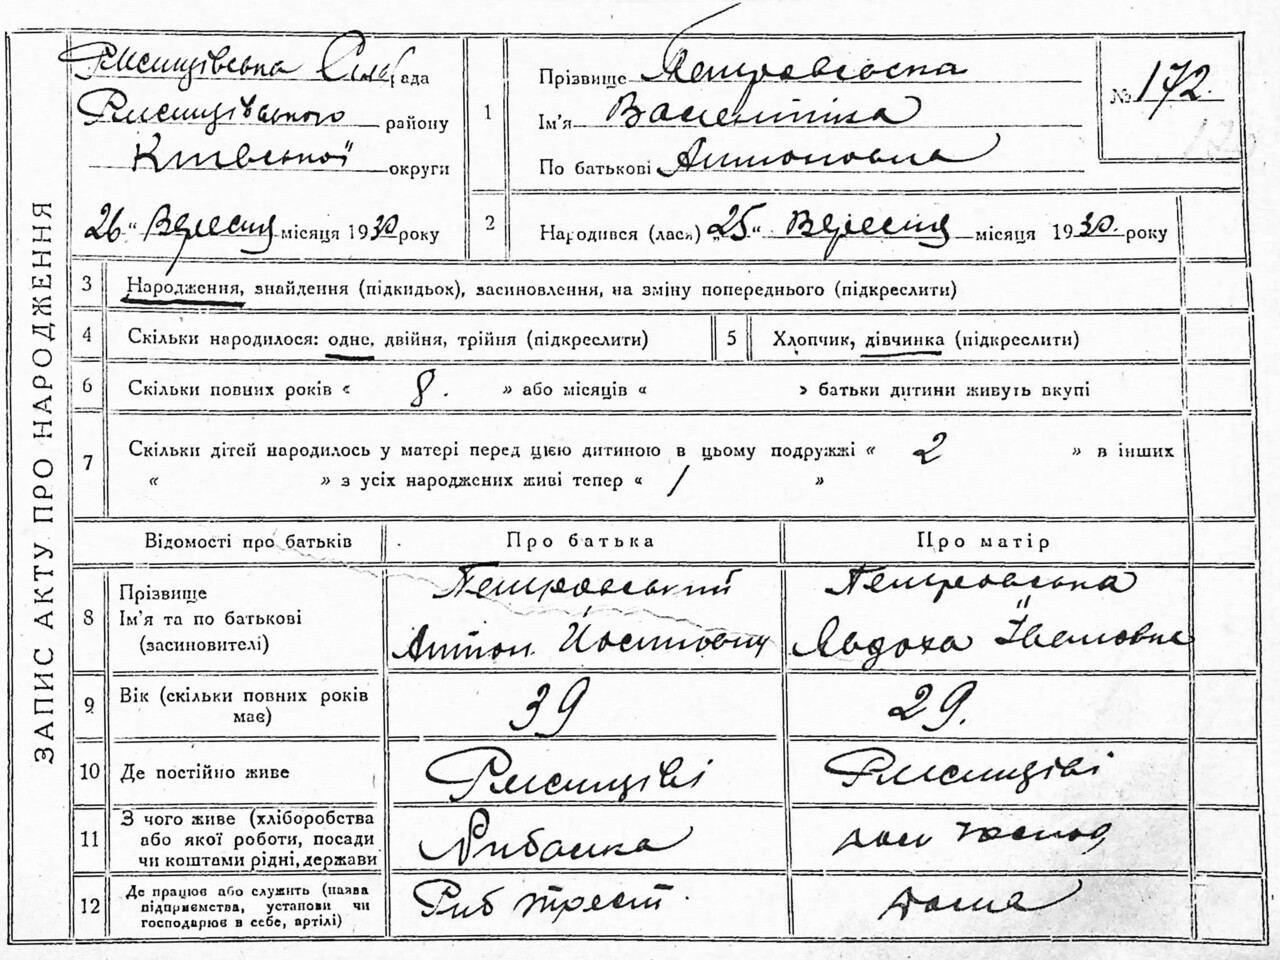 ЗАПИС АКТУ ПРО НАРОДЖЕННЯ
Ржищівська Сільрада
Ржищівського району
Київської округи
26" Вересня місяця 1930 року
1
Прізвище Петровська
Ім'я Валентина
По батькові Антоновна
№ 172.
2
Народився (лася) „25" Вересня місяця 1930. року
3 Народження, знайдення (підкидьок), засиновлення, на зміну попереднього (підкреслити)
4 Скільки народилося: одне, двійня, трійня (підкреслити)
5 Хлопчик, дівчинка (підкреслити)
6 Скільки повних років « 8. » або місяців « » батьки дитини живуть вкупі
7 Скільки дітей народилось у матері перед цією дитиною в цьому подружжі « 2 » в інших
« » з усіх народжених живі тепер « 1 »
Відомості про батьків Про батька Про матір
8
Прізвище
Ім'я та по батькові
(засиновителі)
Петровський
Антон Йосипович
Петровська
Явдоха Івановна
9
Вік (скільки повних років
має)
39
29.
10 Де постійно живе
Ржищіві
Ржищіві
11
З чого живе (хліборобства
або якої роботи, посади
чи коштами рідні, держави
Рибалка
дом господ
12
Де працює або служить (назва
підприємства, установи чи
господарює в себе, артілі)
Риб трест.
дома